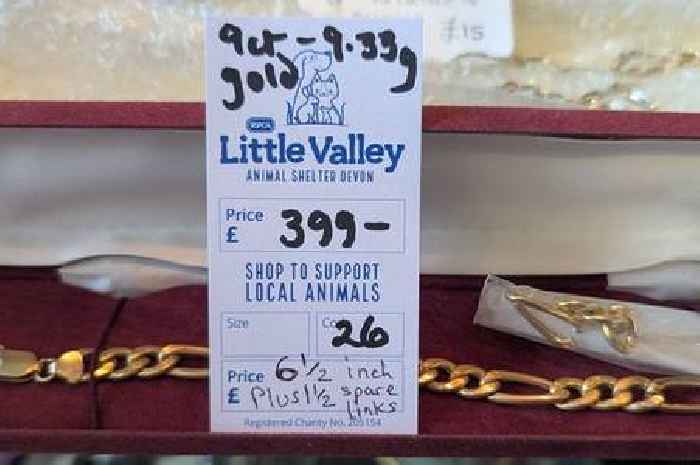 £15
9ct - 9.33g
gold
RSPCA
Little Valley
ANIMAL SHELTER DEVON
Price
£ 399-
SHOP TO SUPPORT
LOCAL ANIMALS
Size
26
Price 6 1/2 inch
£ Plus 1 1/2 spare
links
Registered Charity No. 205154